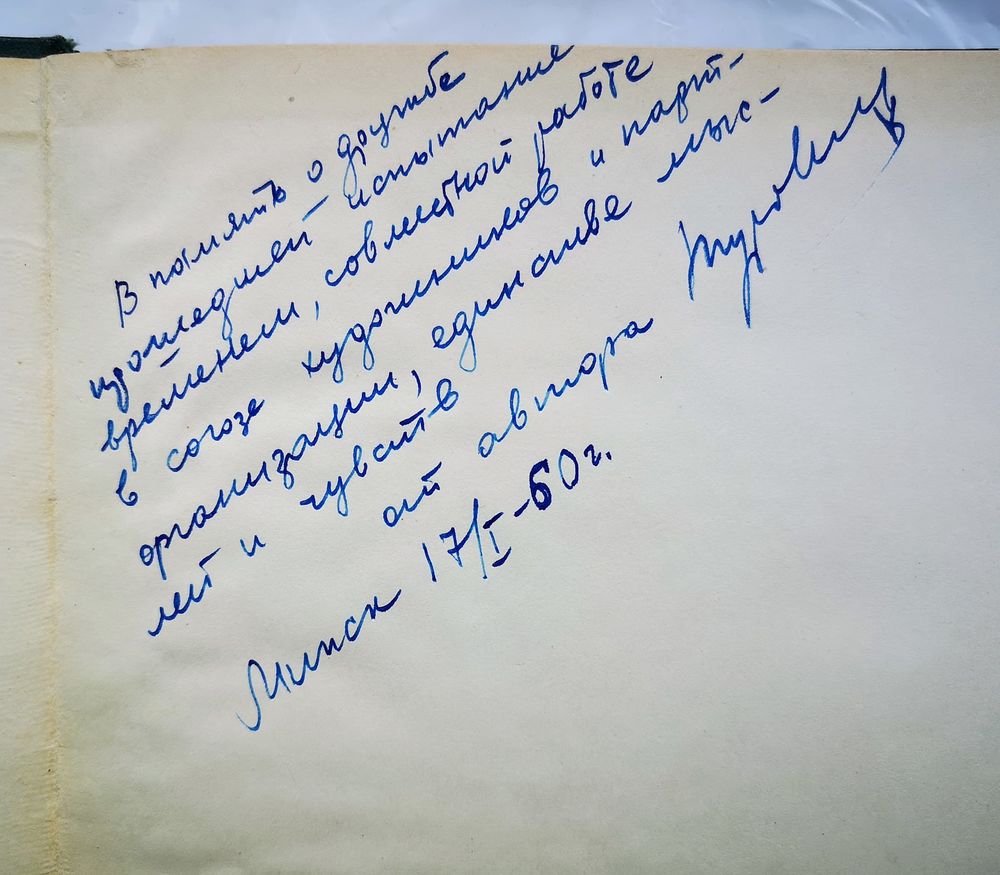 В память о дружбе
прошедшей испытание
временем, совместной работе
в союзе художников и парт-
организации, единстве мыс-
лей и чувств
от автора
Минск 17/I-60г.